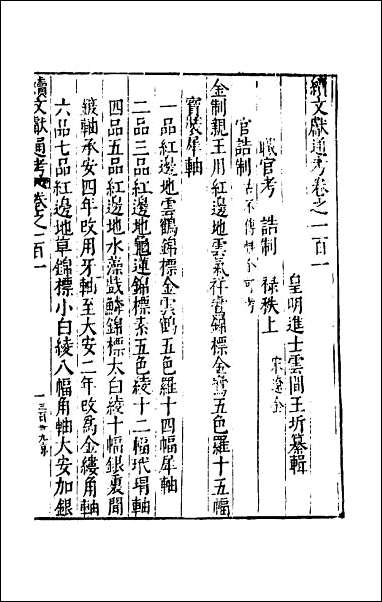 續文獻通考卷之一百一
皇明進士雲間王圻纂輯
職官考 誥制 祿秩上
宋遼金
官誥制
金制親王用紅邊地雲氣祥鸞錦標金鸞五色羅十五幅
寶裝犀軸
一品紅邊地雲鶴錦標金雲鶴五色羅十四幅犀軸
二品三品紅邊地龜蓮錦標素五色綾十二幅玳瑁軸
四品五品紅邊地水藻戲鱗錦標大白綾十幅銀裏間
鍍軸承安四年改用牙軸至大安二年改爲金縷角軸
六品七品紅邊地草錦標小白綾八幅角軸大安加銀
續文獻通考 卷之一百一
一